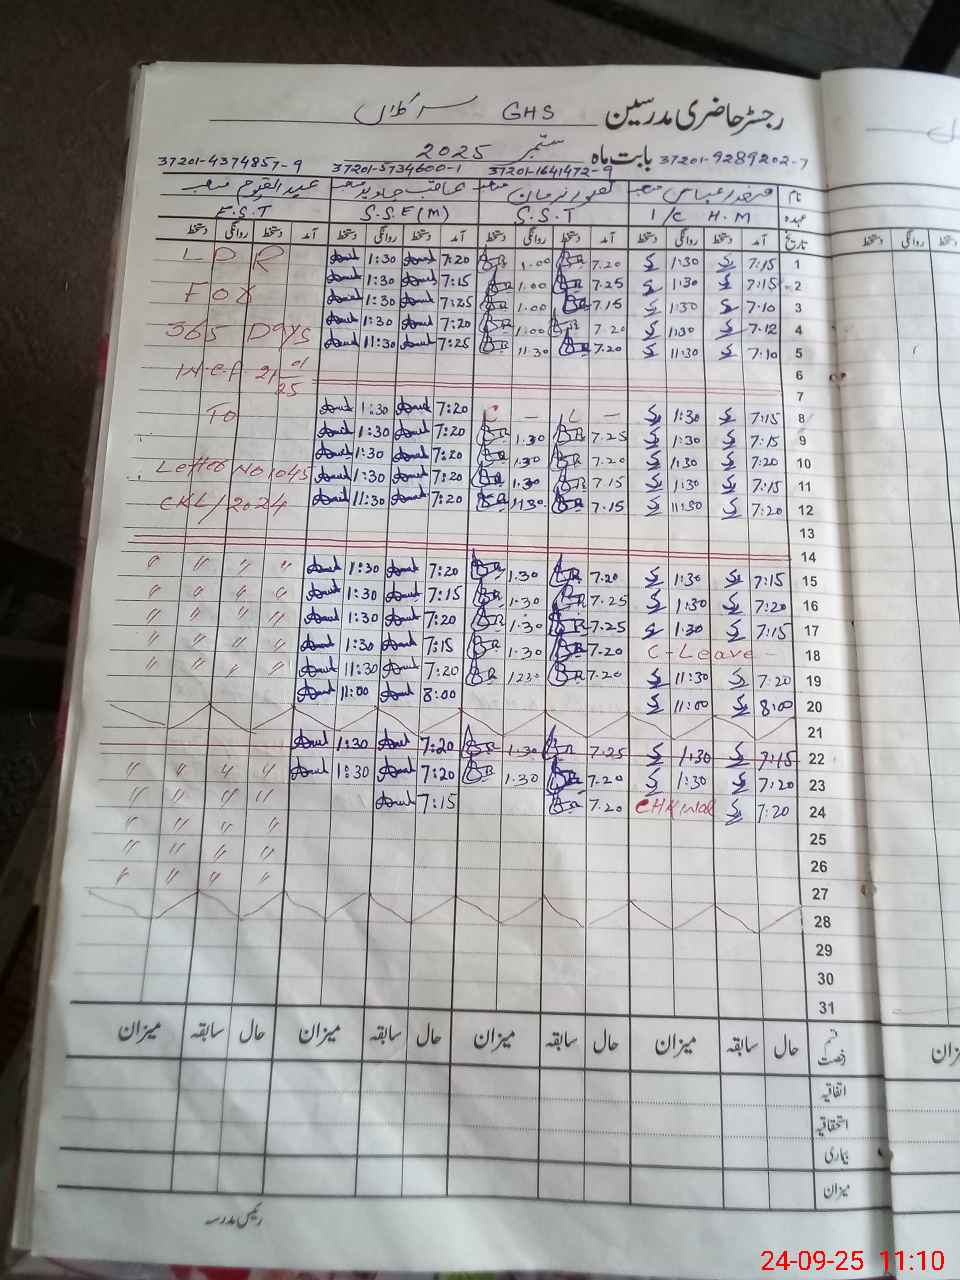 رجسٹر حاضری مدرسین GHS سرکلاں
بابت ماہ ستمبر 2025
37201-9289202-7 37201-1641472-9 37201-5734600-1 37201-4374857-9
نام صفدر عباس عاقب جاوید عبدالقیوم
عہدہ I/C H.M S.S.T S.S.E(M) E.S.T
تاریخ آمد دستخط روانگی دستخط آمد دستخط روانگی دستخط آمد دستخط روانگی دستخط آمد دستخط روانگی دستخط
1 7:15 1:30 7.20 1.00 7:20 1:30 L P R
2 7:15 1:30 7.25 1.00 7:15 1:30
3 7:10 1:30 7.15 1.00 7:25 1:30 FOR
4 7:12 1:30 7.20 1:00 7:20 1:30
5 7:10 11:30 7.20 11.30 7:25 11:30 365 Days
6
7
8 7:15 1:30 — L — C 7:20 1:30 To
9 7:15 1:30 7.25 1.30 7:20 1:30
10 7:20 1:30 7.20 1.30 7:20 1:30
11 7:15 1:30 7.15 1.30 7:20 1:30 Letter No 1045
12 7:20 11:30 7.15 1130 7:20 11:30 CKL/2024
13
14
15 7:15 1:30 7.20 1.30 7:20 1:30 〃 〃 〃 〃
16 7:20 1:30 7.25 1.30 7:15 1:30 〃 〃 〃 〃
17 7:15 1:30 7.25 1.30 7:20 1:30 〃 〃 〃 〃
18 C-Leave - 7.20 1.30 7:15 1:30 〃 〃 〃 〃
19 7:20 11:30 7.20 1230 7:20 11:30 〃 〃 〃 〃
20 8:00 11:00 8:00 11:00
21
22 7:15 1:30 7.25 1.30 7:20 1:30
23 7:20 1:30 7.20 1.30 7:20 1:30 〃 〃 〃 〃
24 7:20 7.20 7:15 〃 〃 〃 〃
25 〃 〃 〃 〃
26 〃 〃 〃 〃
27 〃 〃 〃 〃
28
29
30
31
قسم رخصت حال سابقہ میزان حال سابقہ میزان حال سابقہ میزان حال سابقہ میزان
اتفاقیہ
استحقاقیہ
بیماری
میزان
رئیس مدرسہ
24-09-25 11:10